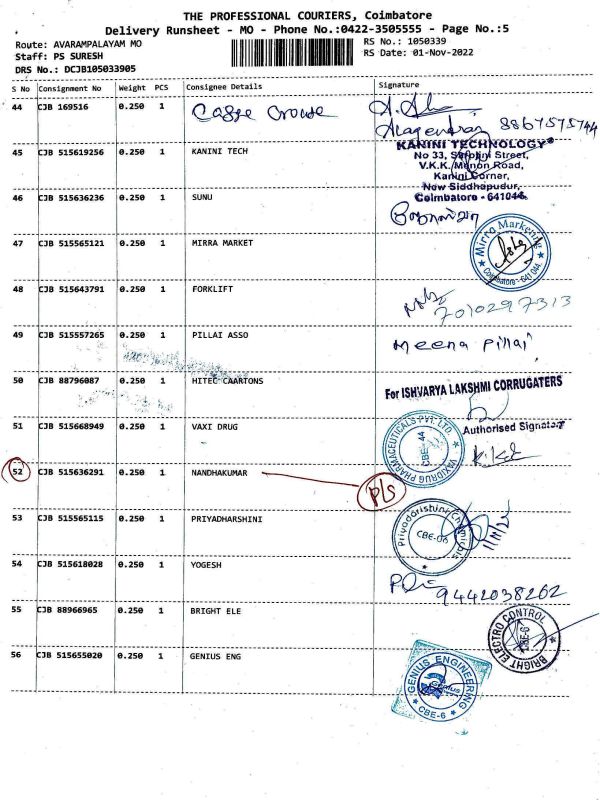 THE PROFESSIONAL COURIERS, Coimbatore
Delivery Runsheet - MO - Phone No.:0422-3505555 - Page No.:5
Route: AVARAMPALAYAM MO
RS No.: 1050339
Staff: PS SURESH
RS Date: 01-Nov-2022
DRS No.: DCJB105033905
S No Consignment No Weight PCS Consignee Details Signature
44 CJB 169516 0.250 1
8867575744
45 CJB 515619256 0.250 1 KANINI TECH
KANINI TECHNOLOGY
No 33, Street,
V.K.K. Menon Road,
Kanini Corner,
New Siddhapudur,
Coimbatore - 641044.
46 CJB 515636236 0.250 1 SUNU
47 CJB 515565121 0.250 1 MIRRA MARKET
Mirra Marketing
Coimbatore - 641 044
48 CJB 515643791 0.250 1 FORKLIFT
7010297313
49 CJB 515557265 0.250 1 PILLAI ASSO
Meena Pillai
50 CJB 88796087 0.250 1 HITEC CAARTONS
For ISHVARYA LAKSHMI CORRUGATERS
Authorised Signatory
51 CJB 515668949 0.250 1 VAXI DRUG
VAXIDRUG PHARMACEUTICALS PVT. LTD.
CBE-44
52 CJB 515636291 0.250 1 NANDHAKUMAR
P/s
53 CJB 515565115 0.250 1 PRIYADHARSHINI
Priyadarshini Chemicals
CBE-06
54 CJB 515618028 0.250 1 YOGESH
9442038262
55 CJB 88966965 0.250 1 BRIGHT ELE
BRIGHT ELECTRO CONTROL
CBE-6
56 CJB 515655020 0.250 1 GENIUS ENG
GENIUS ENGINEERING
Genius
CBE-6